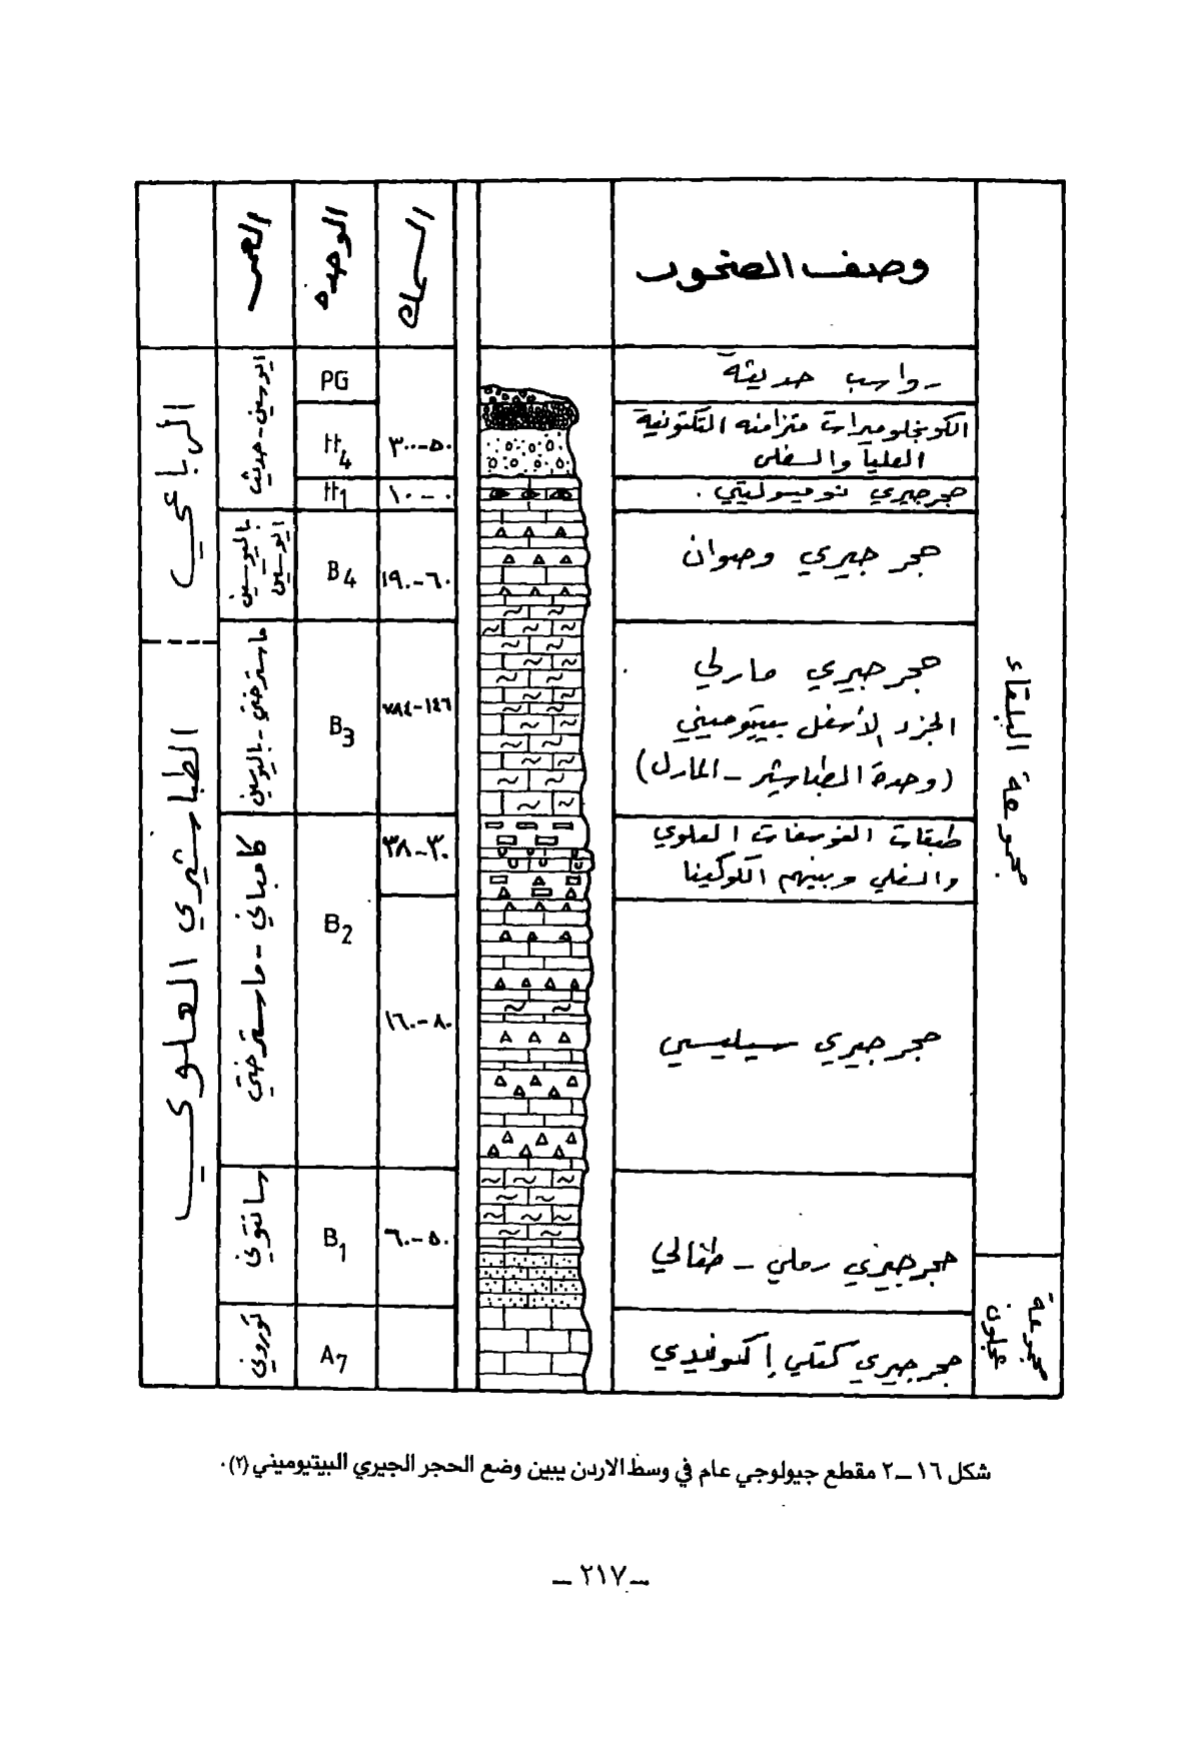 وصف الصخور
السمك
الوحده
العمر
مجموعة البلقاء
مجموعة
عجلون
رواسب حديثة
PG
ايوسين-حديث
الرباعي
الكونجلوميرات متزامنه التكتونية
العليا والسفلى
٥٠-٣٠٠
H4
حجر جيري نوميوليتي .
٠-١٠
H1
حجر جيري وصوان
٦٠-١٩٠
B4
باليوسين
ايوسين
حجر جيري مارلي
الجزء الأسفل بيتوميني
(وحدة الطباشير-المارل)
B3
ماسترختي-باليوسين
الطباشيري العلوي
طبقات الفوسفات العلوي
والسفلي وبينهم الكوكينا
٣٠-٣٨
B2
كامباني-ماسترختي
حجر جيري سيليسي
٨٠-١٦٠
حجر جيري رملي - طفالي
٥٠-٦٠
B1
سانتوني
حجر جيري كتلي إكنونيدي
A7
توروني
شكل ١٦ــ٢ مقطع جيولوجي عام في وسط الاردن يبين وضع الحجر الجيري البيتيوميني (٢) .
ــ ٢١٧ ــ